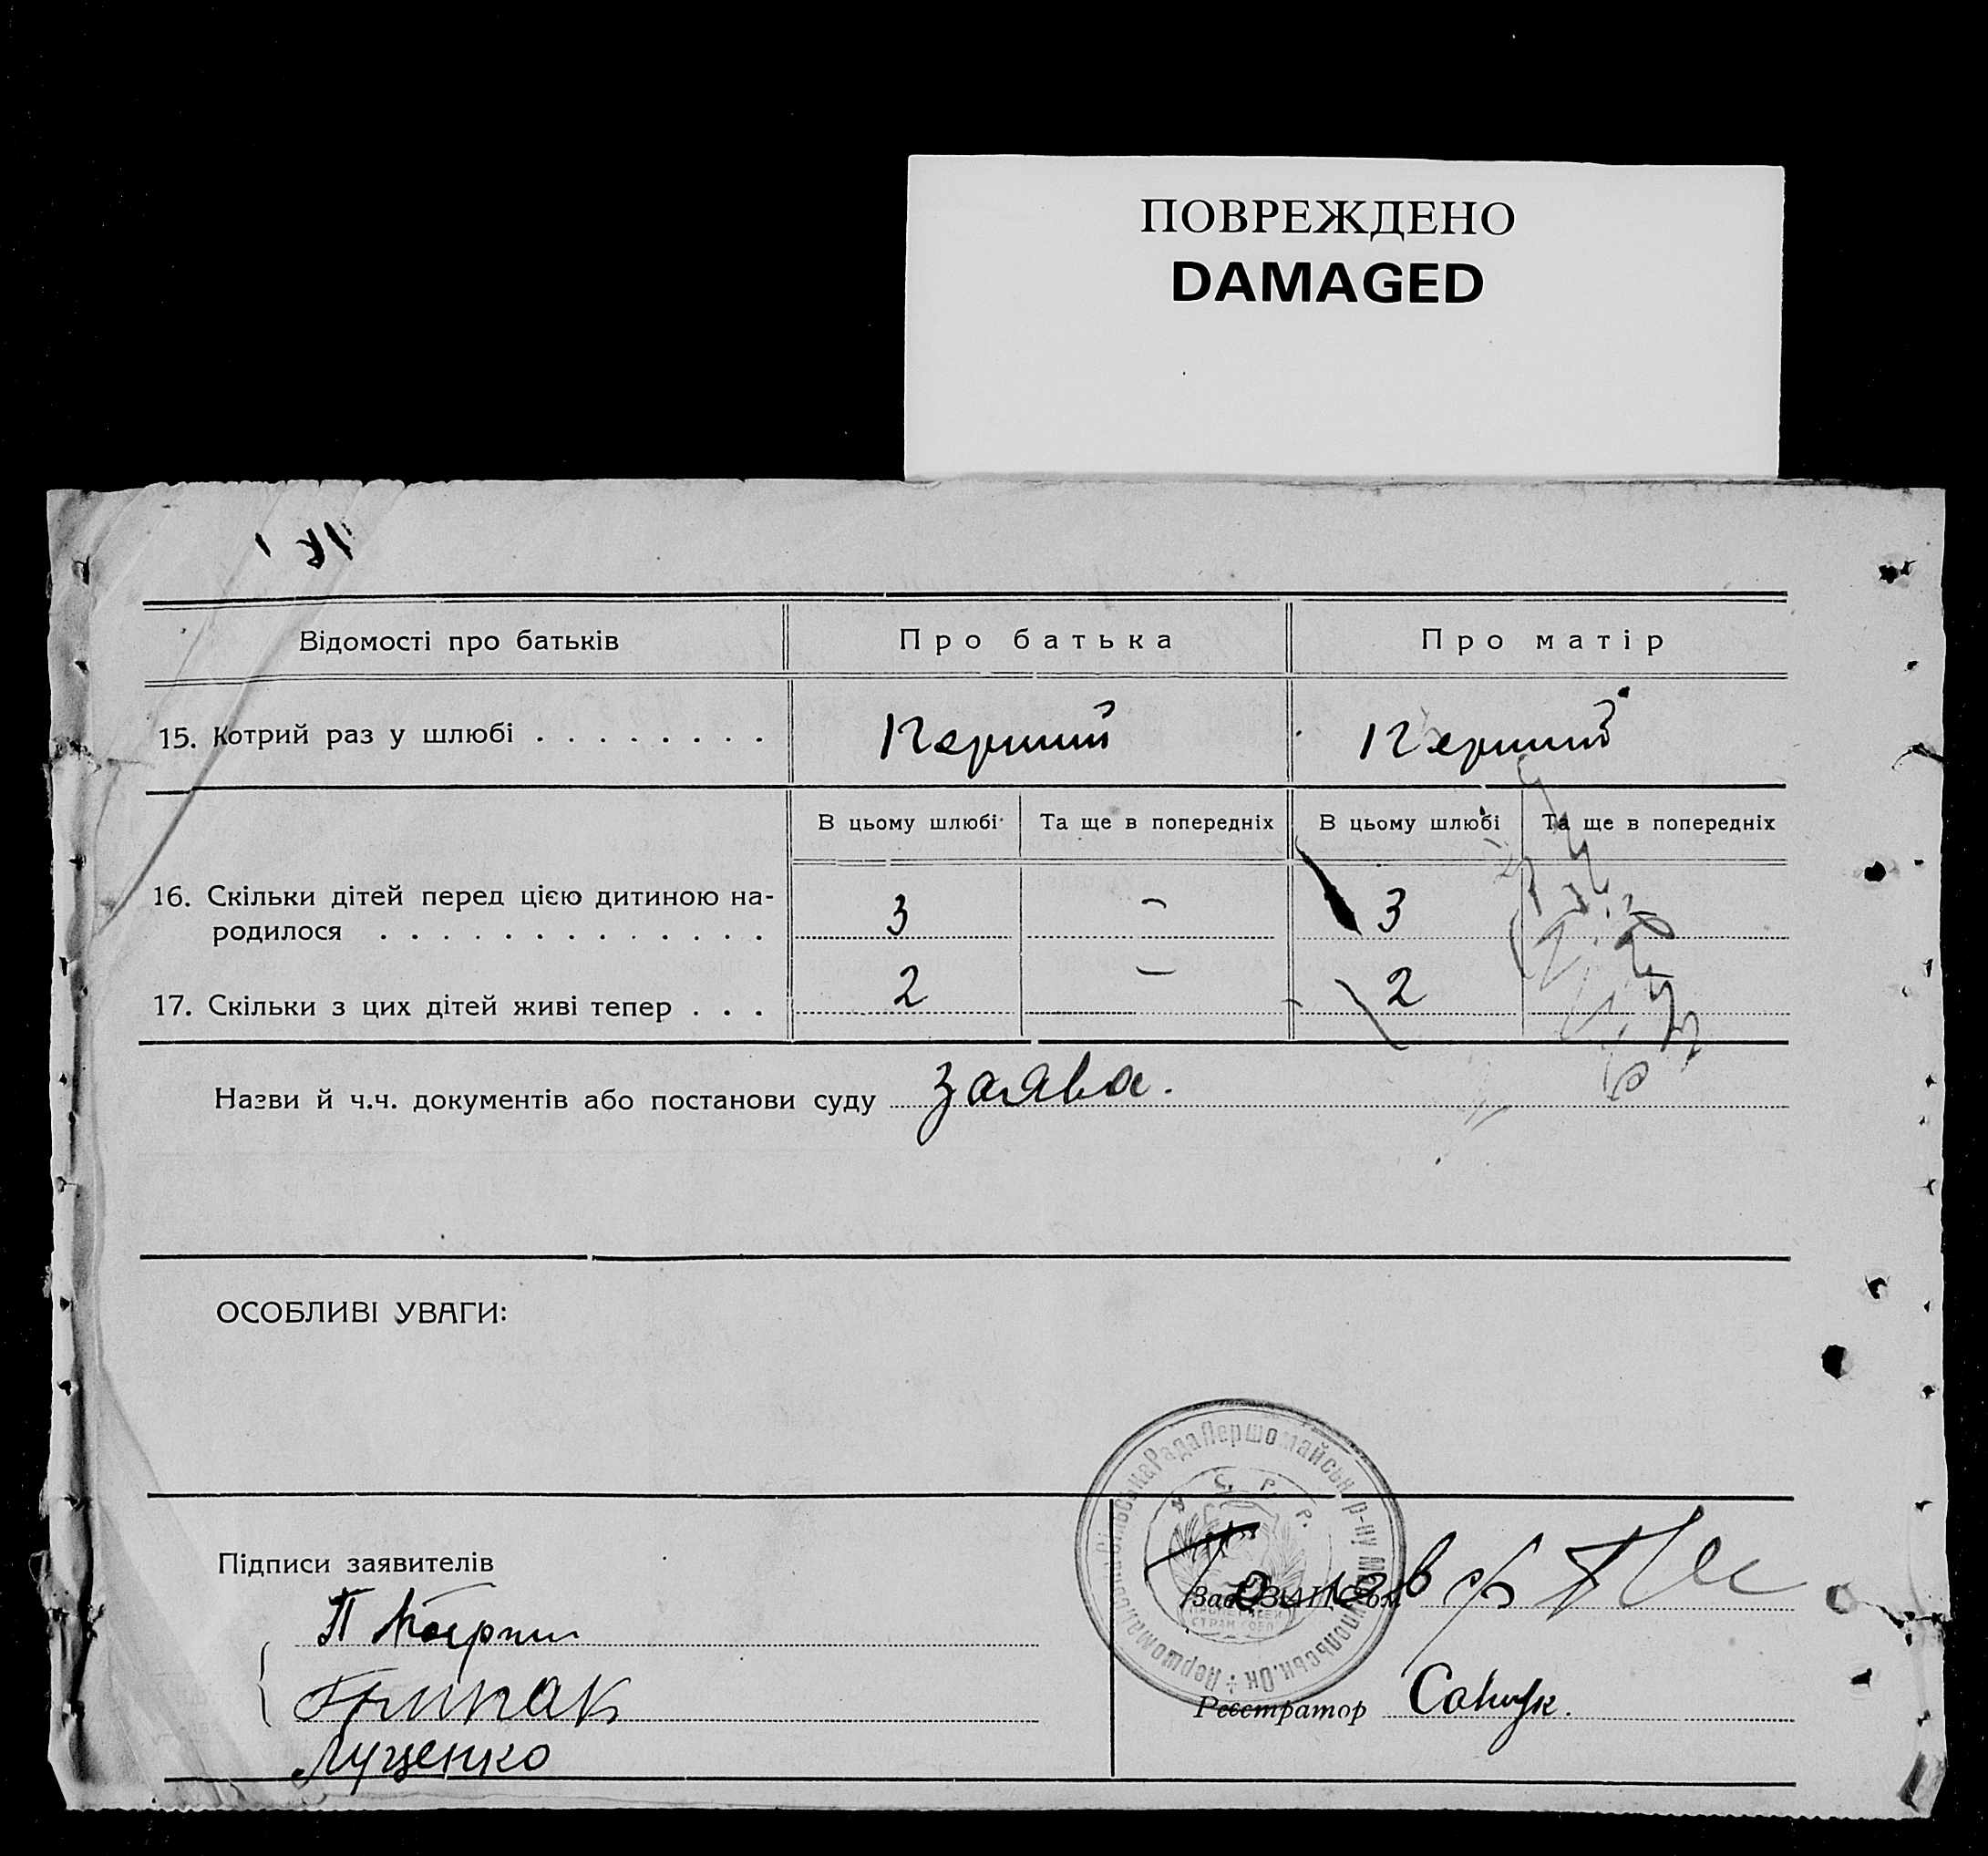 ПОВРЕЖДЕНО
DAMAGED
Відомості про батьків
Про батька
Про матір
15. Котрий раз у шлюбі . . . . . . . .
Перший
Перший
В цьому шлюбі
Та ще в попередніх
В цьому шлюбі
Та ще в попередніх
16. Скільки дітей перед цією дитиною на-
родилося . . . . . . . . . . . . .
3
–
3
17. Скільки з цих дітей живі тепер . . .
2
–
2
Назви й ч.ч. документів або постанови суду заява.
ОСОБЛИВІ УВАГИ:
Сільська Рада Першомайськ. р-ну
С. Р. Р.
Підписи заявителів
Грипак
Луценко
Реєстратор